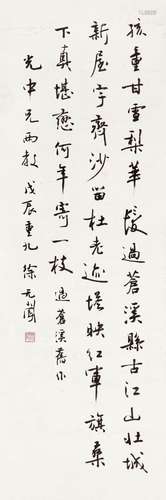 孩童甘雪梨華鬢過蒼溪縣古江山壯城
新屋宇齊沙留杜老迹塔映紅軍旗桑
下真堪戀何年寄一枝 過蒼溪舊作
光中兄雨教 戊辰重九 徐无聞